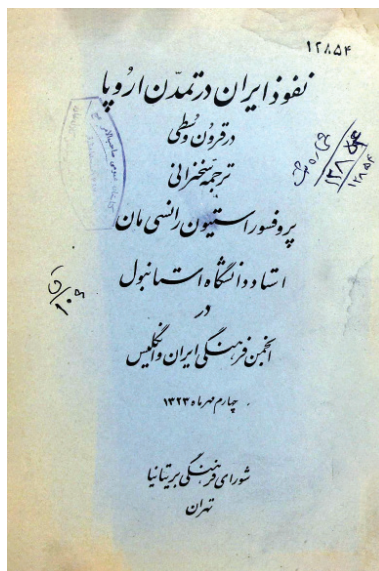 ۱۲۸۵۴
نفوذ ایران در تمدّن اروپا
در قرون وسطی
ترجمه سخنرانی
پروفسور استیون رانسی مان
استاد دانشگاه استانبول
در
انجمن فرهنگی ایران و انگلیس
چهارم مهر ماه ۱۳۲۳
شورای فرهنگی بریتانیا
تهران
۱۲۸۵۴
۱۲۸۵۴